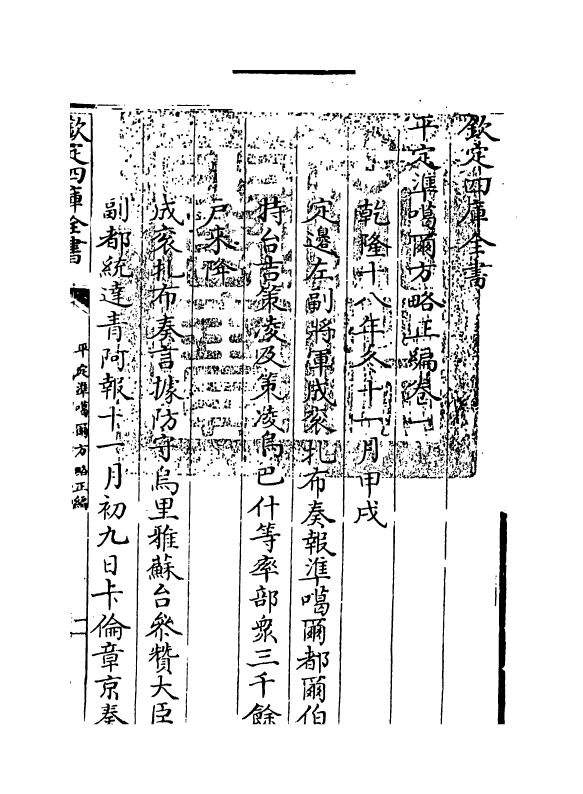 欽定四庫全書
平定準噶爾方略正編卷一
乾隆十八年冬十一月甲戌
定邊左副將軍成衮扎布奏報準噶爾都爾伯
特台吉策凌及策凌烏巴什等率部衆三千餘
戶來降
成衮扎布奏言據防守烏里雅蘇台叅贊大臣
副都統達青阿報十一月初九日卡倫章京秦
欽定四庫全書
平定準噶爾方略正編